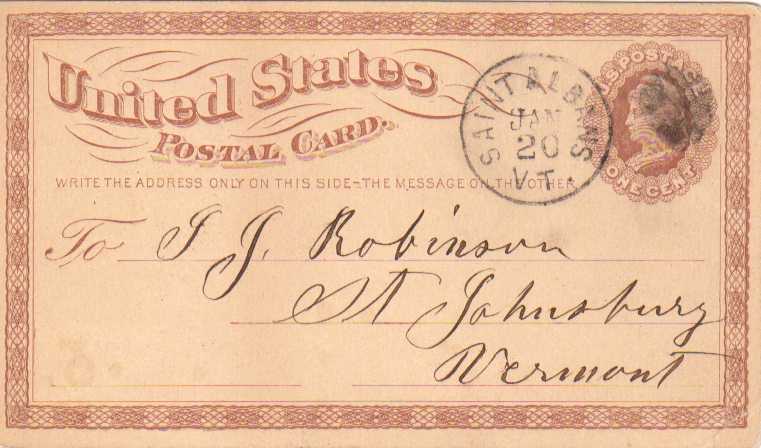 United States
POSTAL CARD.
WRITE THE ADDRESS ONLY ON THIS SIDE-THE MESSAGE ON THE OTHER
SAINT ALBANS
JAN
20
VT.
U.S. POSTAGE
ONE CENT
To S J. Robinson
St Johnsbury
Vermont